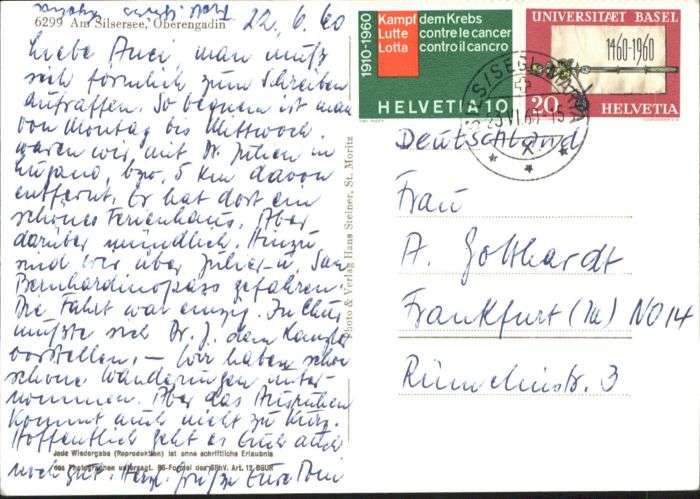 6299 Am Silsersee, Oberengadin
22.6.60
Liebe Anei, man muß
sich förmlich zum Schreiben
aufraffen. So bequem ist man
von Montag bis Mittwoch
waren wir mit Dr. Julien in
Lugano, bzw. 5 km davon
entfernt. Er hat dort ein
schönes Ferienhaus. Aber
darüber mündlich. Hinzu
sind wir über Julier- u. San
Bernhardinopass gefahren.
Die Fahrt war einzig. In Chur
mußte sich Dr. J. dem Kanzler
vorstellen, – Wir haben schon
schöne Wanderungen unter-
nommen. Aber das Ausruhen
kommt auch nicht zu kurz.
Hoffentlich geht es Euch auch
noch gut. Herzl. Grüße Eure
Jede Wiedergabe (Reproduktion) ist ohne schriftliche Erlaubnis
des Photographen untersagt. Art. 12 BGUR
Photo & Verlag Hans Steiner, St. Moritz
1910-1960
Kampf dem Krebs
Lutte contre le cancer
Lotta contro il cancro
HELVETIA 10
UNIVERSITÆT BASEL
1460-1960
20 HELVETIA
Deutschland
Frau
A. Gotthardt
Frankfurt (M) NO 14
Rümelinstr. 3